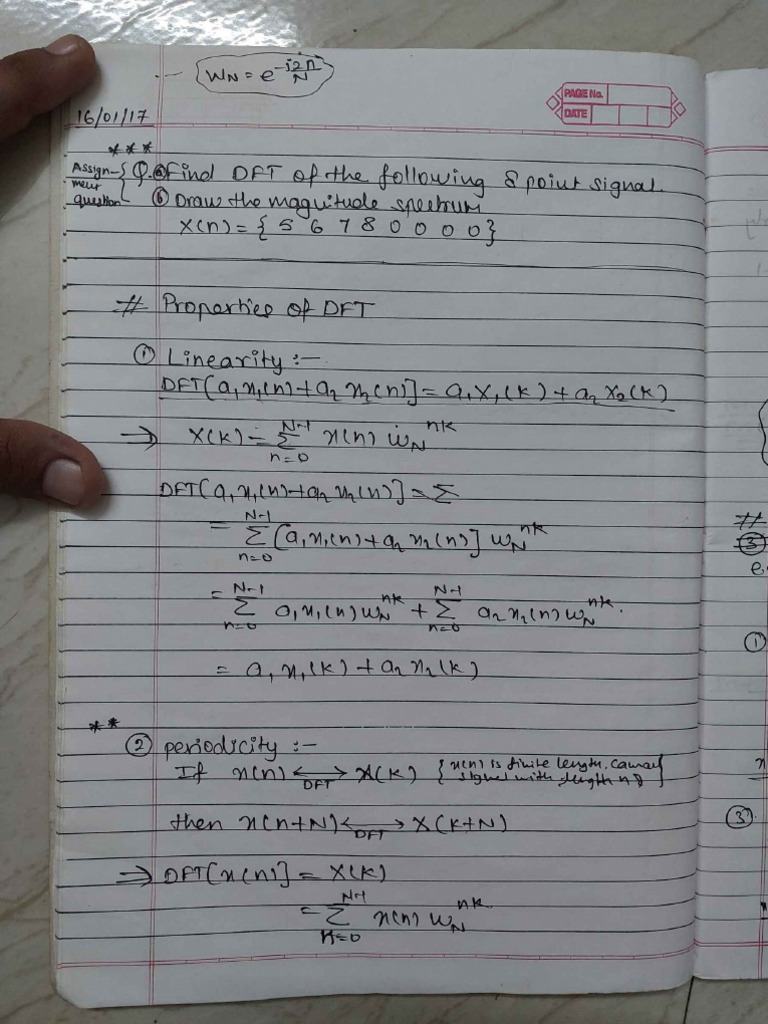 W_N = e^{-j2π/N}
PAGE No.
DATE
16/01/17
***
Assign- ment question Q. ⓐ Find DFT of the following 8 point signal.
ⓑ Draw the magnitude spectrum
X(n) = { 5 6 7 8 0 0 0 0 }
# Properties of DFT
① Linearity :-
DFT[a₁x₁(n)+a₂x₂(n)] = a₁X₁(k) + a₂X₂(k)
⇒ X(k) = Σ_{n=0}^{N-1} x(n) W_N^{nk}
DFT[a₁x₁(n)+a₂x₂(n)] = Σ
= Σ_{n=0}^{N-1} [a₁x₁(n)+a₂x₂(n)] W_N^{nk}
= Σ_{n=0}^{N-1} a₁x₁(n) W_N^{nk} + Σ_{n=0}^{N-1} a₂x₂(n) W_N^{nk}.
= a₁x₁(k) + a₂x₂(k)
**
② periodicity :-
If x(n) ⟷ DFT X(k) { x(n) is finite length, causal
signal with length
then x(n+N) ⟷ DFT X(k+N)
⇒ DFT[x(n)] = X(k)
= Σ_{n=0}^{N-1} x(n) W_N^{nk}
#
③
e.
①
x
③